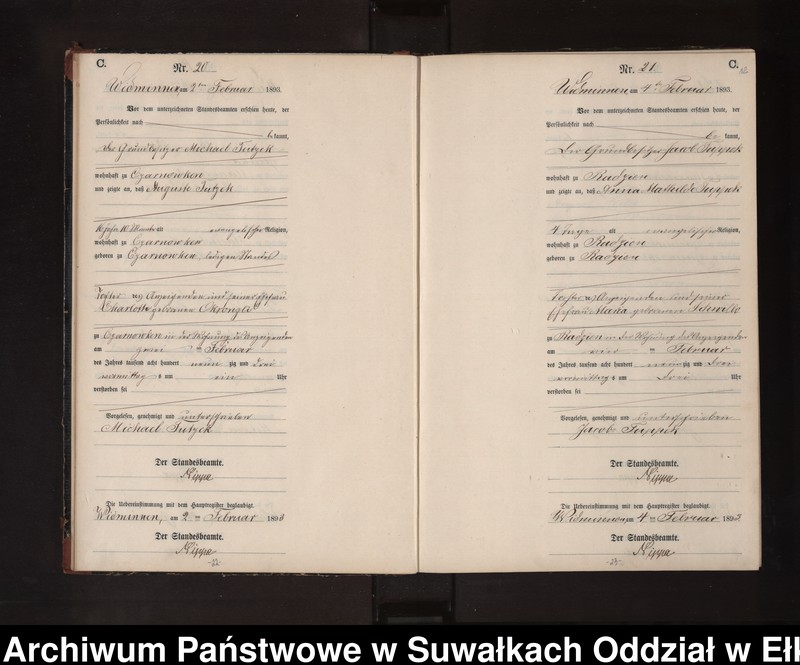 C.
Nr. 20
Widminnen, am 2ten Februar 1893.
Vor dem unterzeichneten Standesbeamten erschien heute, der
Persönlichkeit nach
be kannt,
der Grundbesitzer Michael
wohnhaft zu Czarnowken
und zeigte an, daß Auguste
10 Monate alt evangelischer Religion,
wohnhaft zu Czarnowken
geboren zu Czarnowken, ledigen Standes
Tochter des Anzeigenden und seiner Ehefrau
Charlotte geborenen
zu Czarnowken in der Wohnung des Anzeigenden
am zwei ten Februar
des Jahres tausend acht hundert neun zig und drei
vormittags um ein Uhr
verstorben sei
Vorgelesen, genehmigt und unterschrieben
Michael
Der Standesbeamte.
Nippa
Die Uebereinstimmung mit dem Hauptregister beglaubigt.
Widminnen, am 2 ten Februar 1893
Der Standesbeamte.
Nippa
C.
Nr. 21.
Widminnen, am 4ten Februar 1893.
Vor dem unterzeichneten Standesbeamten erschien heute, der
Persönlichkeit nach
be kannt,
Der Grundbesitzer Jacob
wohnhaft zu Radzien
und zeigte an, daß Anna Mathilde
4 Tage alt evangelischer Religion,
wohnhaft zu Radzien
geboren zu Radzien
Tochter des Anzeigenden und seiner
Ehefrau geborenen
zu Radzien in der Wohnung des Anzeigenden
am vier ten Februar
des Jahres tausend acht hundert neun zig und drei
vormittags um drei Uhr
verstorben sei
Vorgelesen, genehmigt und unterschrieben
Jacob
Der Standesbeamte.
Nippa
Die Uebereinstimmung mit dem Hauptregister beglaubigt.
Widminnen, am 4 ten Februar 1893
Der Standesbeamte.
Nippa
Archiwum Państwowe w Suwałkach Oddział w Ełk